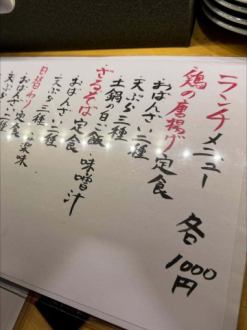 ランチメニュー 各1000円
鶏の唐揚げ定食
おばんざい二種
天ぷら三種
土鍋の白ご飯、味噌汁
ざるそば定食
おばんざい二種
天ぷら三種
日替わり定食
天ぷら二種